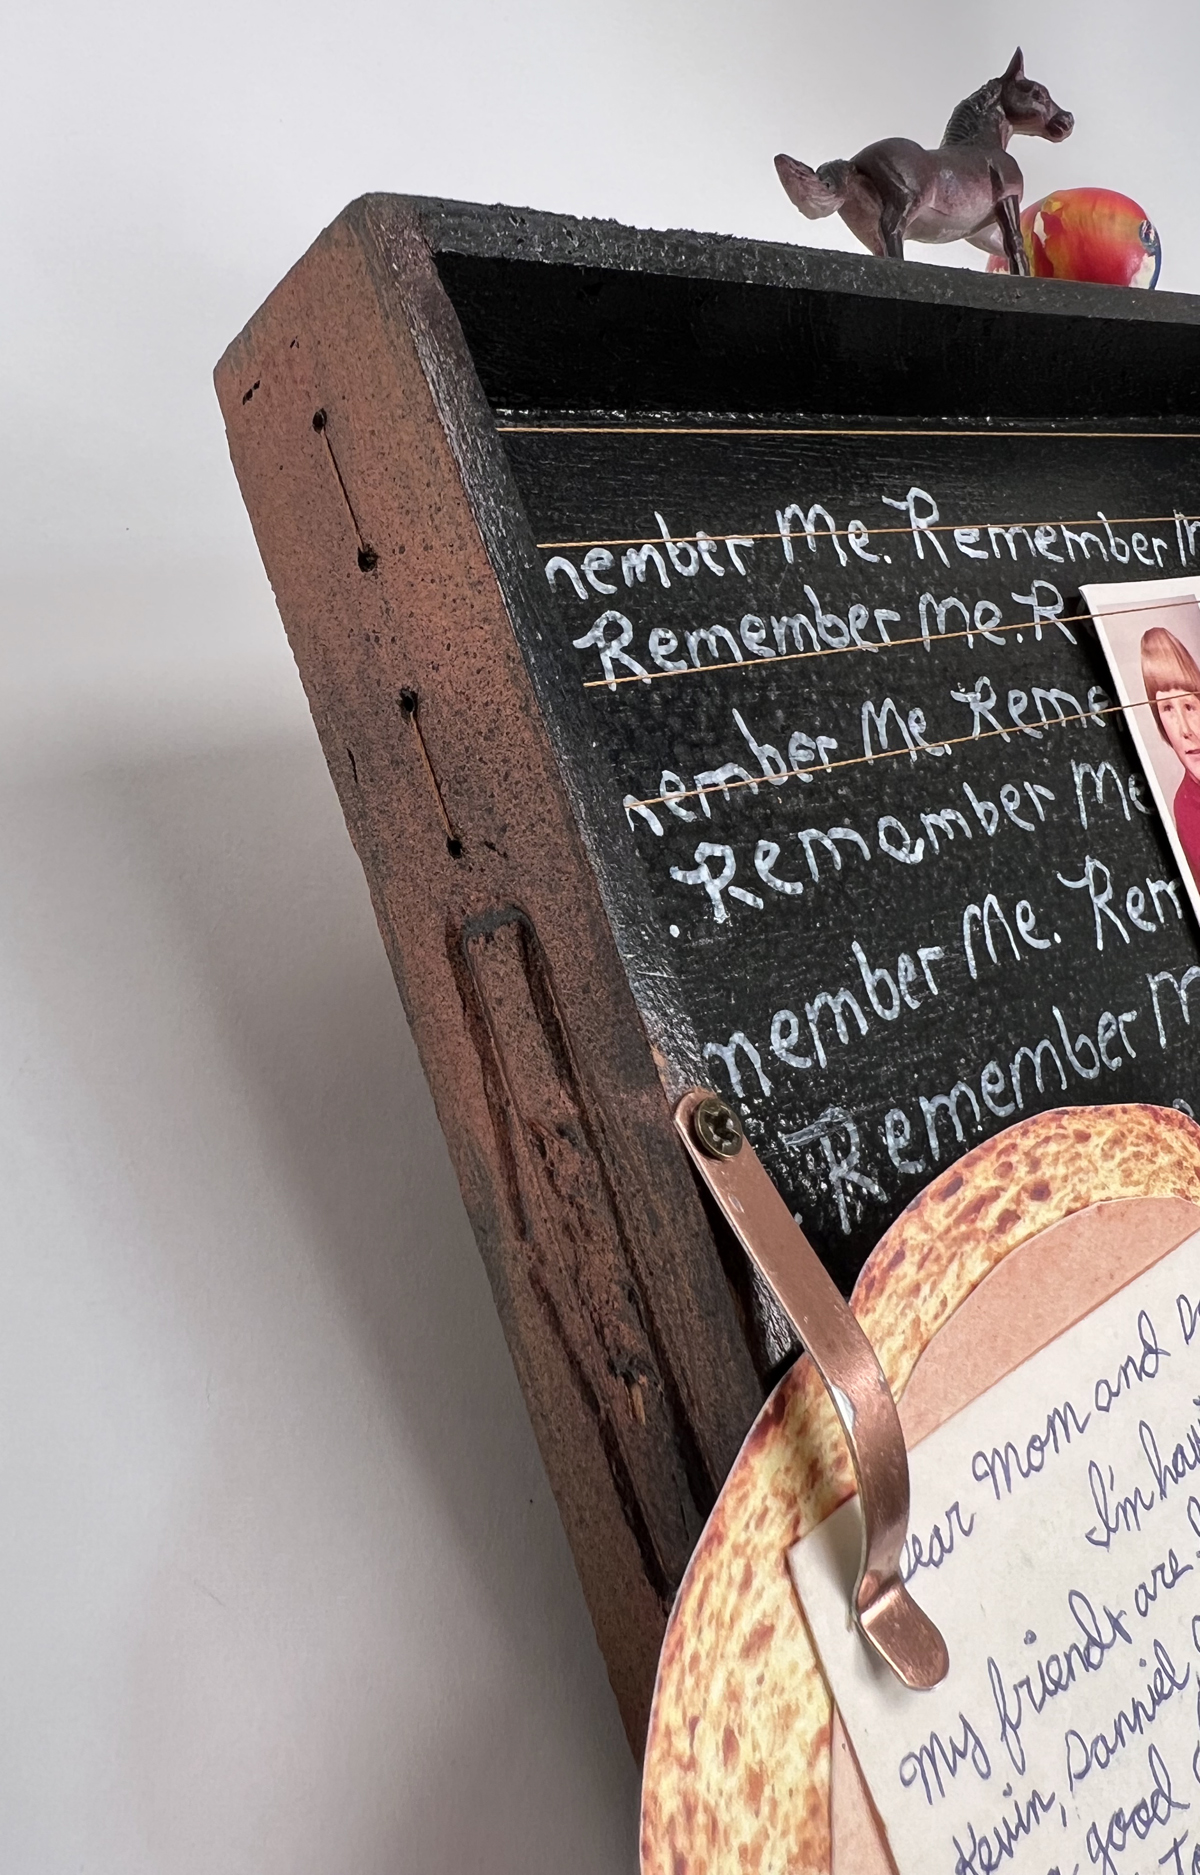 nember Me. Remember M
Remember Me. R
nember Me. Reme
. Remember Me
nember Me. Rem
. Remember M
Dear Mom and D
I'm hav
My friends are
Kevin, Danniel
good